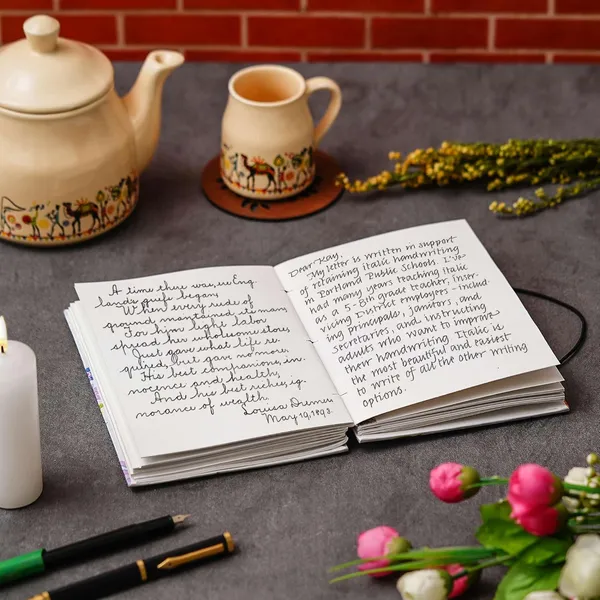 A time there was, ere Eng.
lands griefs began,
When every rude of
ground maintained its man;
For him light labor
spread his wholesome store,
Just gave what life re.
quired, but gave no more,
His best companions, in.
nocence and health,
And his best riches, ig.
norance of wealth.
Louisa Dremer
May 19, 1893.
Dear Kay,
My letter is written in support
of retaining italic handwriting
in Portland Public Schools. I've
had many years teaching italic
as a 5-8th grade teacher, inser-
vicing District employees - includ-
ing principals, janitors, and
secretaries, and instructing
adults who want to improve
their handwriting. Italic is
the most beautiful and easiest
to write of all the other writing
options.